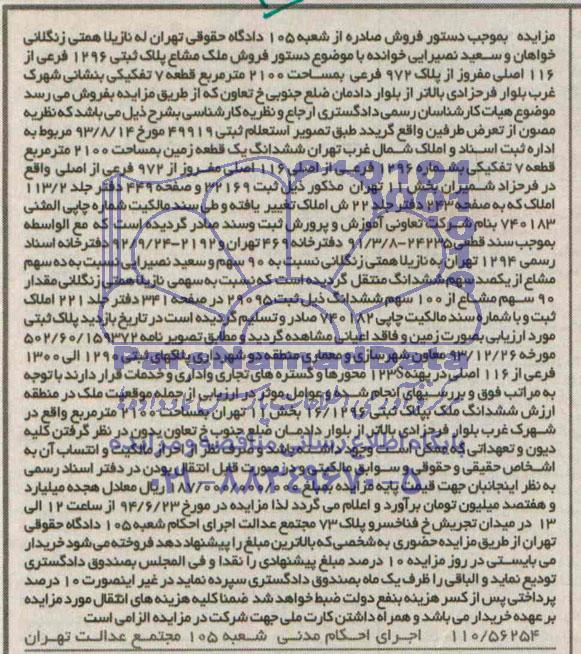 مزایده بموجب دستور فروش صادره از شعبه ۱۰۵ دادگاه حقوقی تهران له نازیلا همتی زنگلانی
خواهان و سعید نصیرایی خوانده با موضوع دستور فروش ملک مشاع پلاک ثبتی ۱۲۹۶ فرعی از
۱۱۶ اصلی مفروز از پلاک ۹۷۲ فرعی بمساحت ۲۱۰۰ مترمربع قطعه ۷ تفکیکی بنشانی شهرک
غرب بلوار فرحزادی بالاتر از بلوار دادمان ضلع جنوبی خ تعاون که از طریق مزایده بفروش می رسد
موضوع هیات کارشناسان رسمی دادگستری ارجاع و نظریه کارشناسی بشرح ذیل می باشد که نظریه
مصون از تعرض طرفین واقع گردید طبق تصویر استعلام ثبتی ۴۹۹۱۹ مورخ ۹۳/۸/۱۴ مربوط به
اداره ثبت اسناد و املاک شمال غرب تهران ششدانگ یک قطعه زمین بمساحت ۲۱۰۰ مترمربع
قطعه ۷ تفکیکی بشماره ۱۲۹۶ فرعی از اصلی ۱۱۶ اصلی مفروز از ۹۷۲ فرعی از اصلی واقع
در فرحزاد شمیران بخش ۱۱ تهران مذکور ذیل ثبت ۳۲۱۶۹ و صفحه ۴۴۹ دفتر جلد ۱۱۳/۲
املاک که به صفحه ۲۴۳ دفتر جلد ۲۲ ش املاک تغییر یافته و طی سند مالکیت شماره چاپی المثنی
۷۴۰۱۸۳ بنام شرکت تعاونی آموزش و پرورش ثبت و سند صادر گردیده است که مع الواسطه
بموجب سند قطعی ۲۴۲۳۵-۹۱/۳/۸ دفترخانه ۴۶۹ تهران و ۲۱۹۲-۹۲/۹/۲۴ دفترخانه اسناد
رسمی ۱۲۹۴ تهران به نازیلا همتی زنگلانی نسبت به ۹۰ سهم و سعید نصیرایی نسبت به ده سهم
مشاع از یکصد سهم ششدانگ منتقل گردیده است که نسبت به سهمی نازیلا همتی زنگلانی مقدار
۹۰ سهم مشاع از ۱۰۰ سهم ششدانگ ذیل ثبت ۲۹۰۹۵ در صفحه ۳۴۱ دفتر جلد ۲۲۱ املاک
ثبت و با شماره سند مالکیت چاپی ۷۴۰۱۹۲ صادر و تسیم گردیده است در تاریخ بازدید پلاک ثبتی
مورد ارزیابی بصورت زمین و فاقد اعیانی مشاهده گردید و مطابق تصویر نامه ۵۰۲/۶۰/۱۵۹۳۷۲
مورخه ۹۳/۱۲/۲۶ معاون شهرسازی و معماری منطقه دو شهرداری پلاکهای ثبتی ۱۲۹۰ الی ۱۳۰۰
فرعی از ۱۱۶ اصلی در پهنه S۱۲۳ محورها و گستره های تجاری واداری و خدمات قرار دارند با توجه
به مراتب فوق و بررسیهای انجام شده و عوامل موثر در ارزیابی از جمله موقعیت ملک در منطقه
ارزش ششدانگ ملک بپلاک ثبتی ۱۶/۱۲۹۶ بخش ۱۱ تهران بمساحت ۲۱۰۰ مترمربع واقع در
شهرک غرب بلوار فرحزادی بالاتر از بلوار دادمان ضلع جنوبی خ تعاون بدون در نظر گرفتن کلیه
دیون و تعهداتی که ممکن است وجود داشته باشد و صرف نظر از احراز مالکیت و انتساب آن به
اشخاص حقیقی و حقوقی و سوابق مالکیتی و در صورت قابل انتقال بودن در دفتر اسناد رسمی
به نظر اینجانبان جهت قیمت پایه مزایده بمبلغ ریال معادل هجده میلیارد
و هفتصد میلیون تومان برآورد و اعلام می گردد لذا مزایده در مورخ ۹۴/۶/۲۳ از ساعت ۱۲ الی
۱۳ در میدان تجریش خ فناخسرو پلاک ۷۳ مجتمع عدالت اجرای احکام شعبه ۱۰۵ دادگاه حقوقی
تهران از طریق مزایده حضوری به شخصی که بالاترین مبلغ را پیشنهاد دهد فروخته می شود خریدار
می بایستی در روز مزایده ۱۰ درصد مبلغ پیشنهادی را نقدا و فی المجلس بصندوق دادگستری
تودیع نماید و الباقی را ظرف یک ماه بصندوق دادگستری سپرده نماید در غیر اینصورت ۱۰ درصد
پرداختی پس از کسر هزینه بنفع دولت ضبط خواهد شد ضمنا کلیه هزینه های انتقال مورد مزایده
بر عهده خریدار می باشد و همراه داشتن کارت ملی جهت شرکت در مزایده الزامی است
۱۱۰/۵۶۲۵۴ اجرای احکام مدنی شعبه ۱۰۵ مجتمع عدالت تهران
پایگاه اطلاع رسانی مناقصه و مزایده
۰۲۱-۸۸۳۴۹۶۷۰-۵